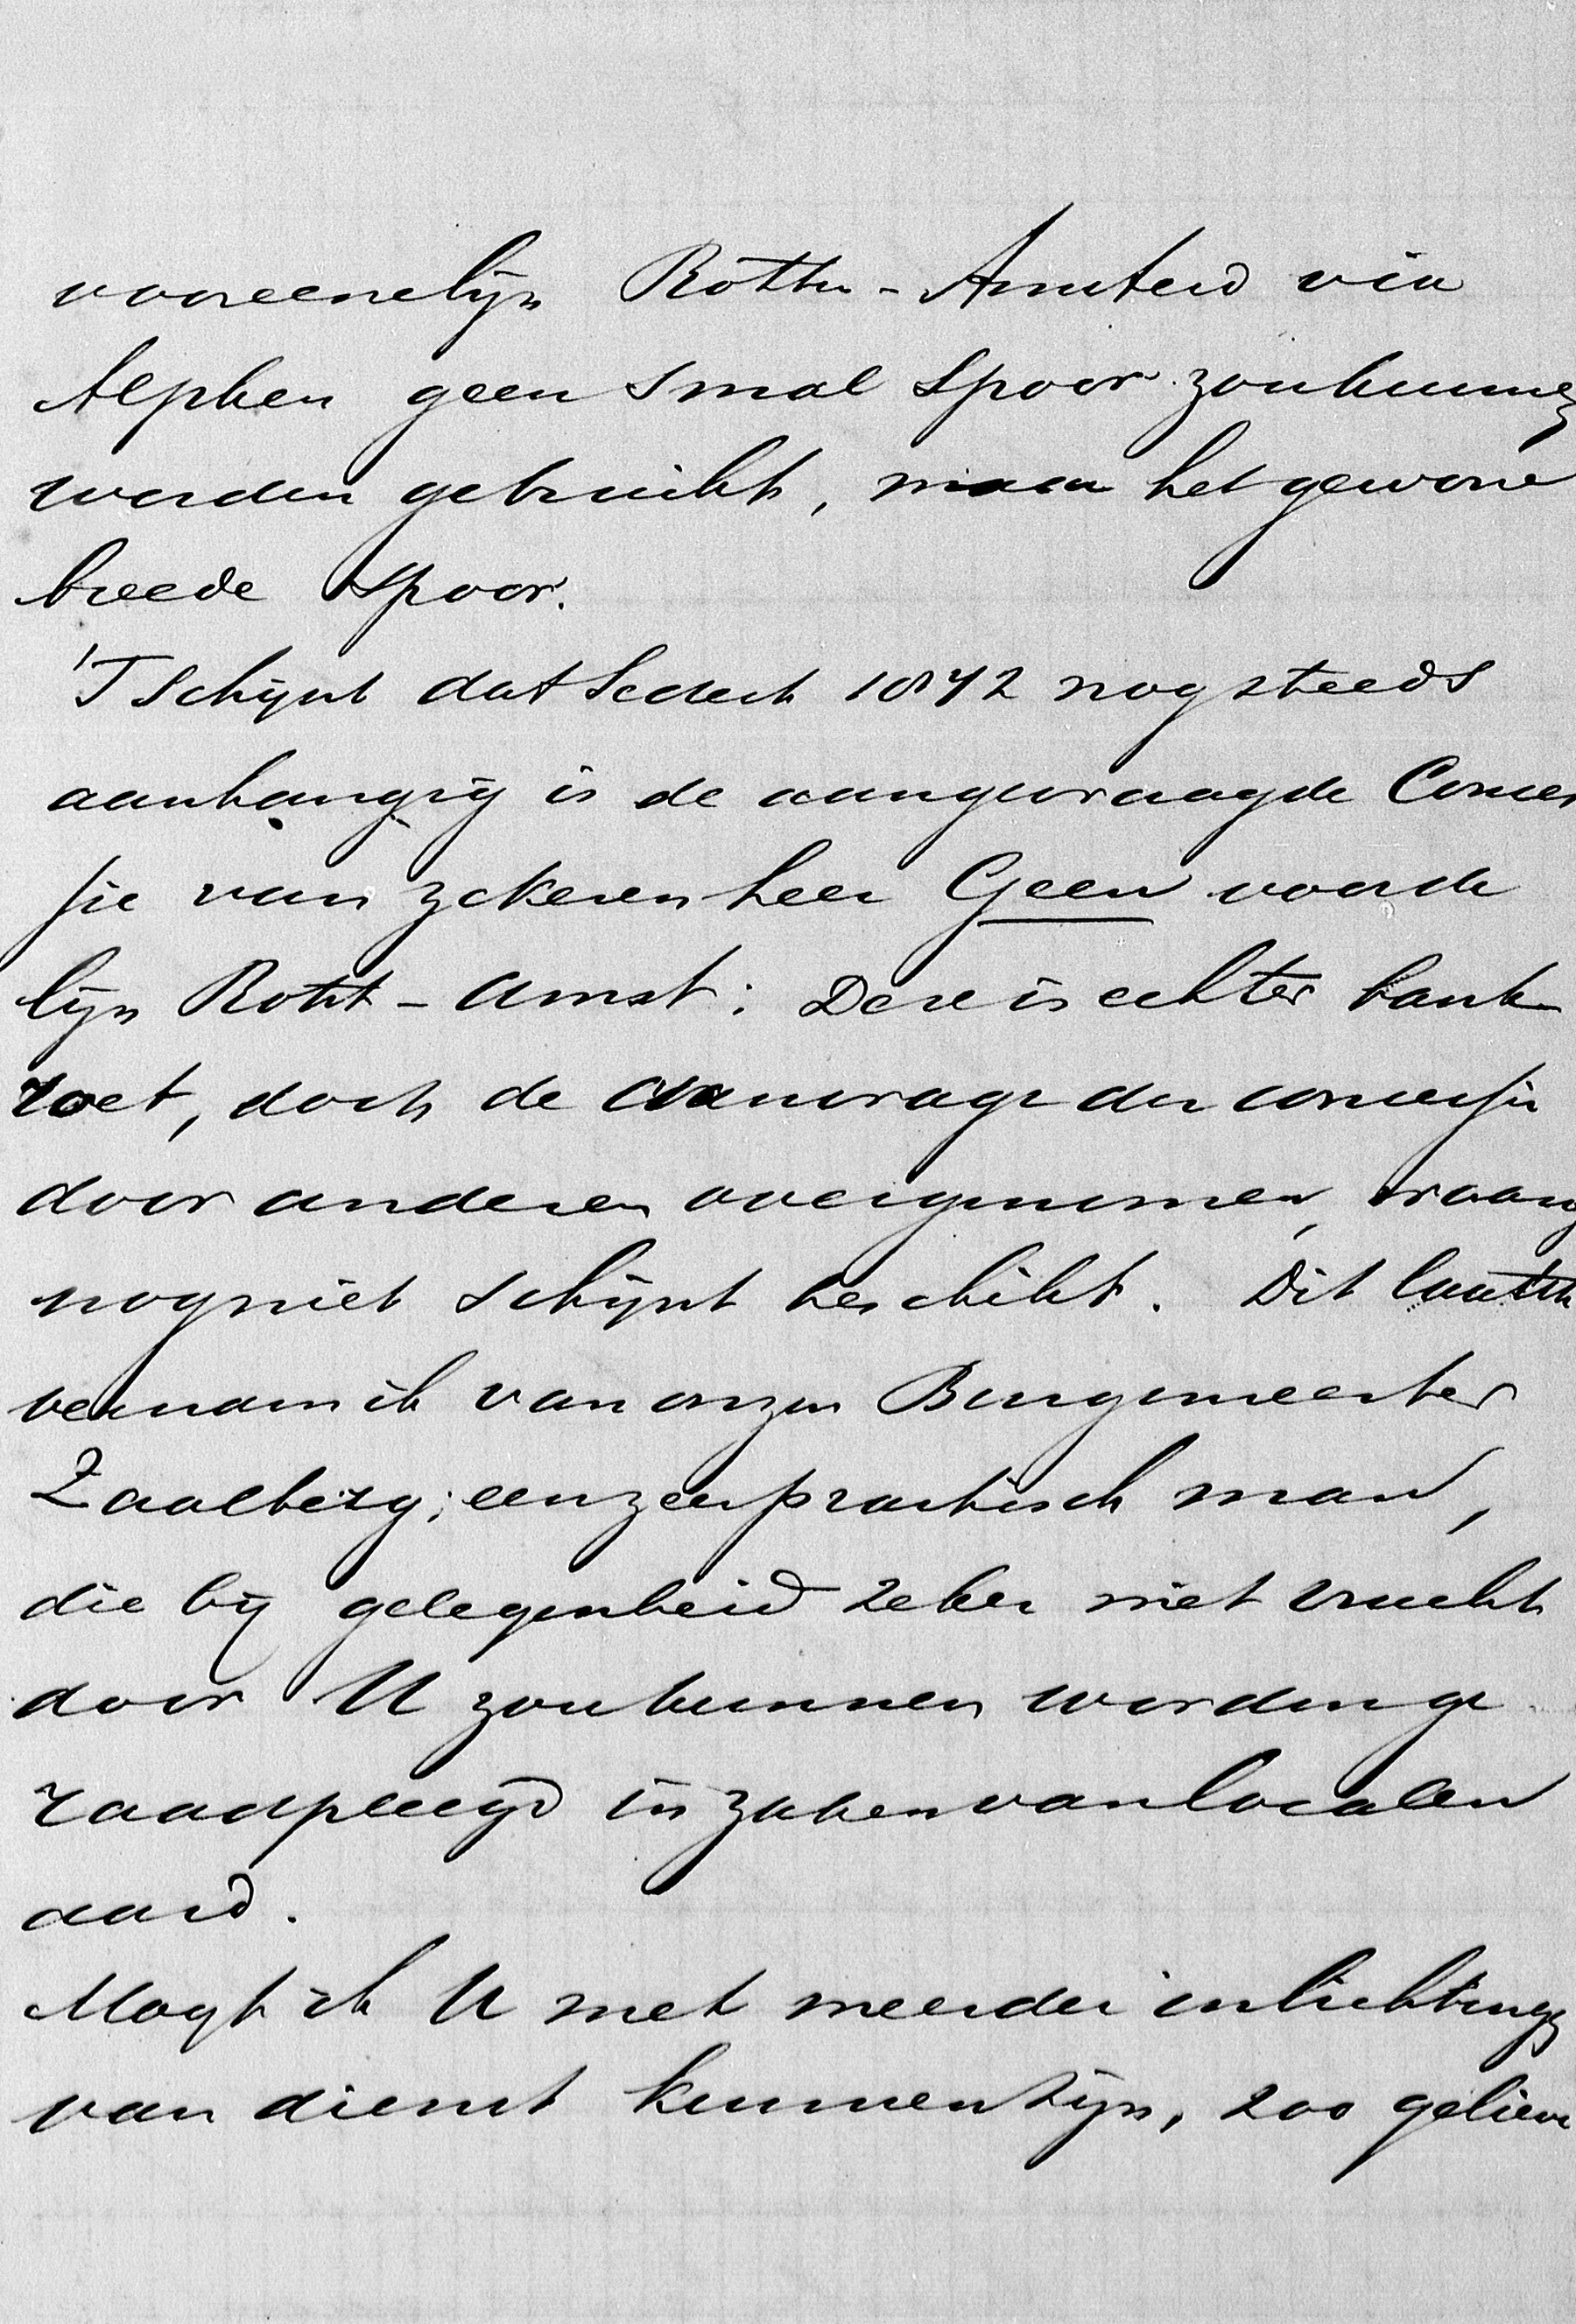 voor een lijn Rotter-Amsterd via
Alphen geen smal spoor zou kunnen
worden gebruikt, maar het gewone
breede spoor.
'T Schijnt dat Sedert 1872 nog steeds
aanhangig is de aangevraagde Conces
sie van zekeren heer Geen voor de
lijn Rott-Amst: Deze is echter bank
roet, doch de aanvrage der concessie
door anderen overgenomen, waarop
nog niet schijnt beschikt. Dit laatste
vernam ik van onzen Burgemeester
Zaalberg; een zeer practisch man,
die bij gelegenheid zeker niet vrucht
door U zou kunnen worden ge
raadpleegd in zaken van localen
aard.
Mogt ik U met meerder inlichtingen
van dienst kunnen zijn, zoo gelieve